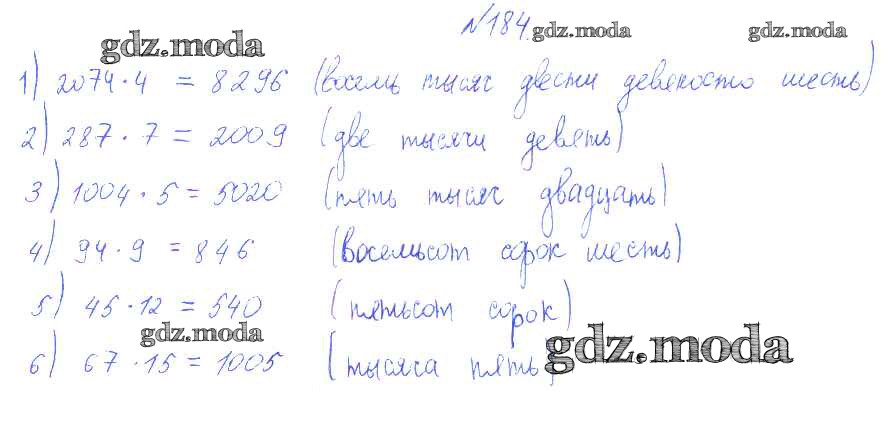 №184. gdz.moda gdz.moda
gdz.moda
1) 2074 · 4 = 8296 (восемь тысяч двести девяносто шесть)
2) 287 · 7 = 2009 (две тысячи девять)
3) 1004 · 5 = 5020 (пять тысяч двадцать)
4) 94 · 9 = 846 (восемьсот сорок шесть)
5) 45 · 12 = 540 (пятьсот сорок)
gdz.moda
6) 67 · 15 = 1005 (тысяча пять)
gdz.moda